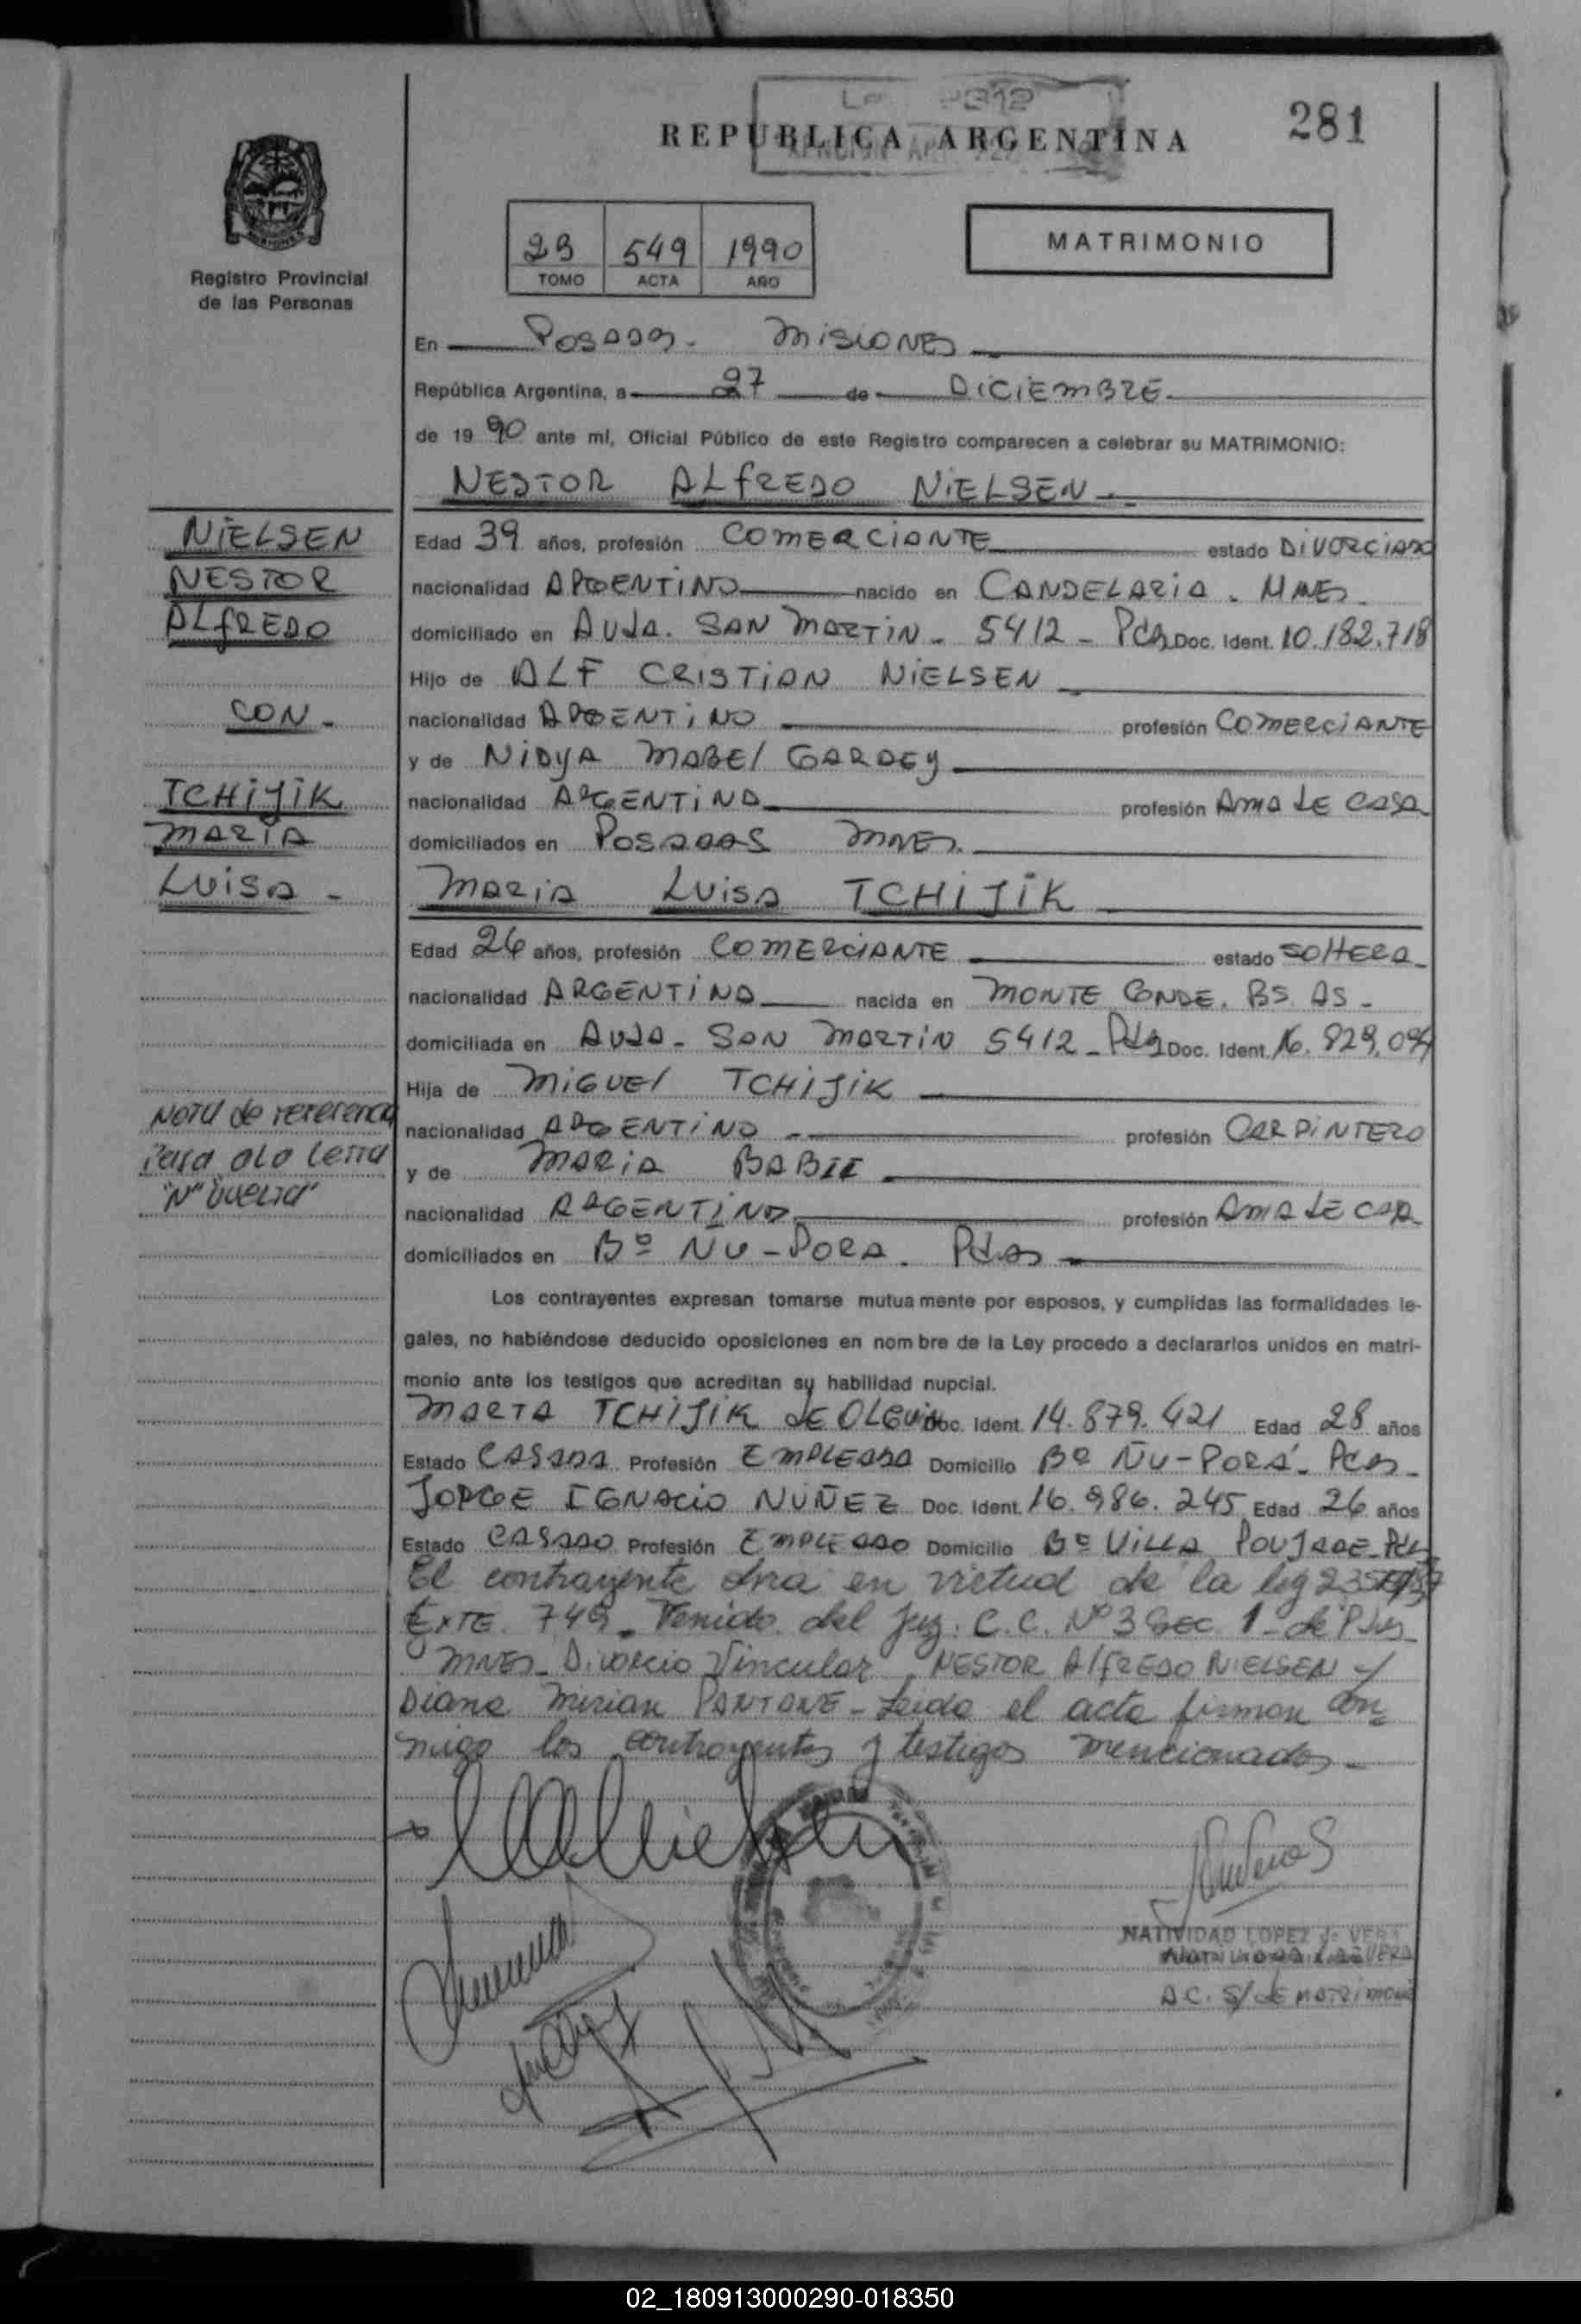 281
REPUBLICA ARGENTINA
MATRIMONIO
Registro Provincial
de las Personas
23 549 1990
TOMO ACTA AÑO
En Posadas - Misiones
República Argentina, a 27 de DICIEMBRE
de 1990 ante mí, Oficial Público de este Registro comparecen a celebrar su MATRIMONIO:
NESTOR ALFREDO NIELSEN
NIELSEN
NESTOR
ALFREDO
CON -
TCHIJIK
MARIA
LUISA -
Edad 39 años, profesión COMERCIANTE estado DIVORCIADO
nacionalidad ARGENTINO nacido en CANDELARIA . MNES.
domiciliado en AVDA. SAN MARTIN - 5412 - Pdas Doc. Ident. 10.182.718
Hijo de ALF CRISTIAN NIELSEN
nacionalidad ARGENTINO profesión COMERCIANTE
y de NIDYA MABEL GARDEY
nacionalidad ARGENTINA profesión AMA DE CASA
domiciliados en POSADAS MNES.
MARIA LUISA TCHIJIK
Edad 26 años, profesión COMERCIANTE estado SOLTERA
nacionalidad ARGENTINA nacida en MONTE CONDE. BS. AS -
domiciliada en AVDA - SAN MARTIN 5412 - Pdas Doc. Ident. 16.829.094
Hija de MIGUEL TCHIJIK
nacionalidad ARGENTINO - profesión CARPINTERO
y de MARIA BABII
nacionalidad ARGENTINA profesión AMA DE CASA
domiciliados en Bº ÑU-PORA . Pdas
Nota de referencia
"N" vuelta"
Los contrayentes expresan tomarse mutuamente por esposos, y cumplidas las formalidades le-
gales, no habiéndose deducido oposiciones en nombre de la Ley procedo a declararlos unidos en matri-
monio ante los testigos que acreditan su habilidad nupcial.
MARTA TCHIJIK DE OLGUIN Doc. Ident. 14.879.421 Edad 28 años
Estado CASADA Profesión EMPLEADA Domicilio Bº ÑU-PORÁ - Pdas -
JORGE IGNACIO NUÑEZ Doc. Ident. 16.986.245 Edad 26 años
Estado CASADO Profesión EMPLEADO Domicilio Bº VILLA POUJADE - Pdas
El contrayente en virtud de la ley
EXTE. 749 - Venido del Juz. C.C. Nº 3 Sec. 1 - de Pdas -
MNES - Divorcio Vincular NESTOR ALFREDO NIELSEN y
Diana Mirian PANTANE - Leida el acta firman con=
migo los contrayentes y testigos mencionados -
NATIVIDAD LOPEZ de VERA
A.C. S/ de MATRIMONIO
02_180913000290-018350